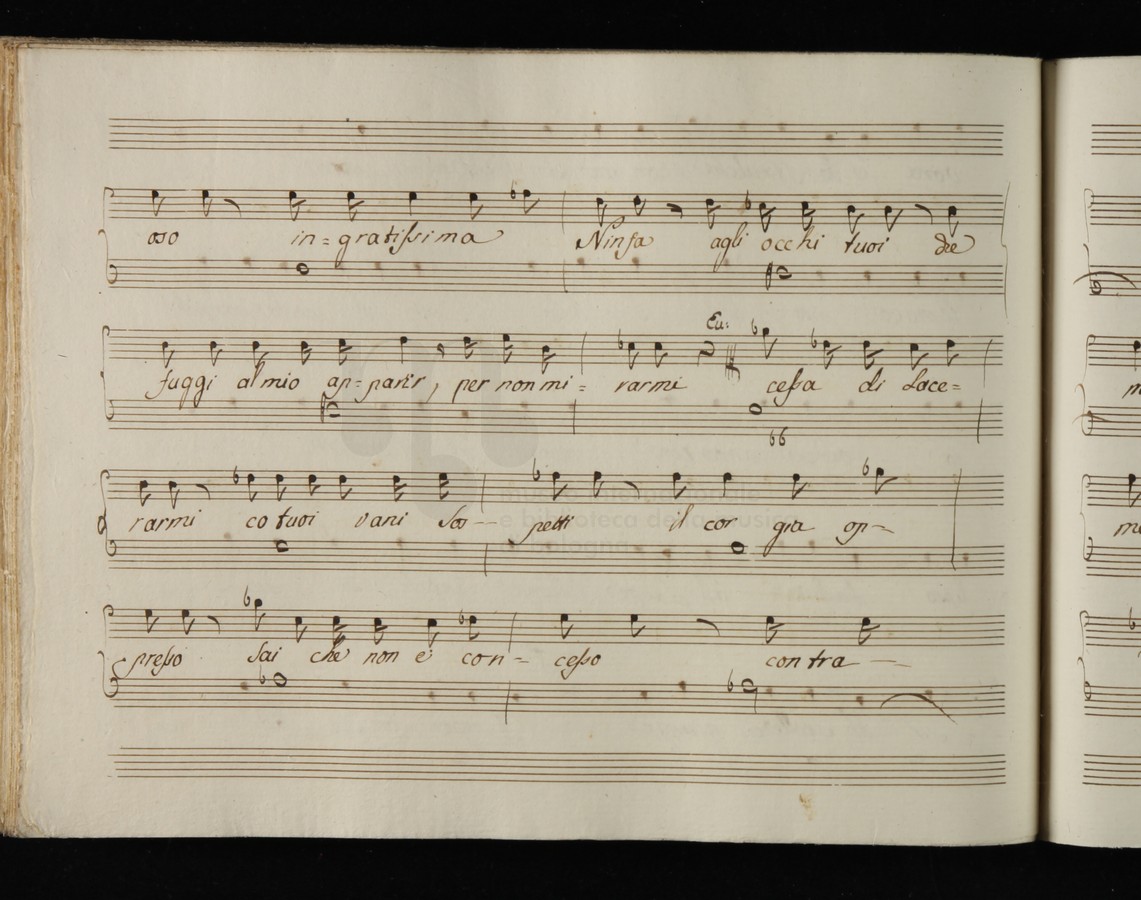 oso in=gratissima Ninfa agli occhi tuoi de
Eu:
fuggi al mio ap=parir, per non mi= rarmi cessa di lace=
66
rarmi co tuoi vani sos- petti il cor gia op-
presso sai che non è con- cesso contra
museo internazionale
e biblioteca della musica
di bologna